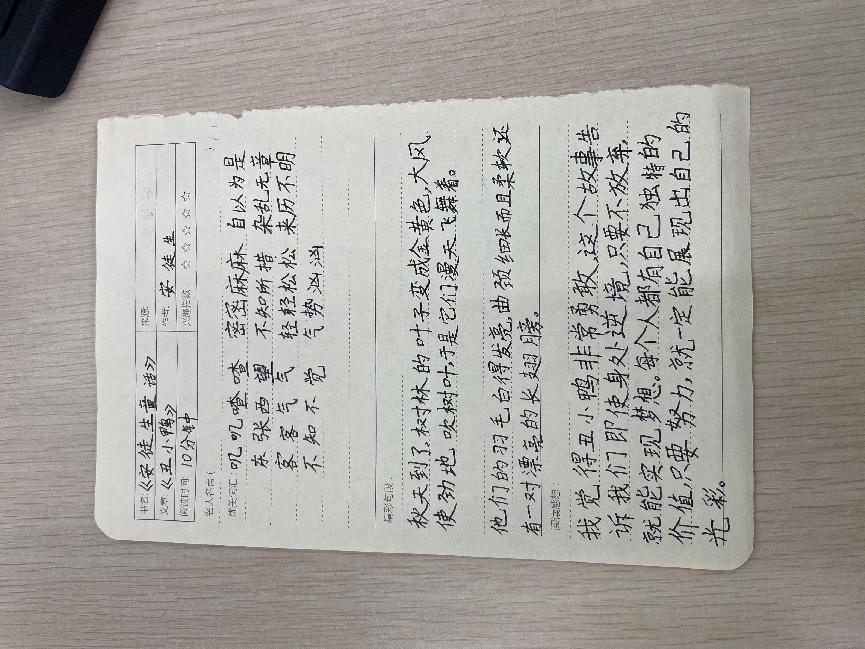 书名:《安徒生童话》 来源:
文章:《丑小鸭》 作者: 安徒生
阅读时间: 10分钟 兴趣指数 ☆☆☆☆☆
名人名言(
优美词汇
叽叽喳喳 密密麻麻 自以为是
东张西望 不知所措 杂乱无章
客客气气 轻轻松松 来历不明
不知不觉 气势汹汹
精彩句段
秋天到了,树林的叶子变成金黄色,大风
使劲地吹树叶,于是它们漫天飞舞着。
他们的羽毛白得发亮,曲颈细长而且柔软还
有一对漂亮的长翅膀。
阅读感想:
我觉得丑小鸭非常勇敢,这个故事告
诉我们即使身处逆境,只要不放弃,
就能实现梦想。每个人都有自己独特的
价值,只要努力,就一定能展现出自己的
光彩。